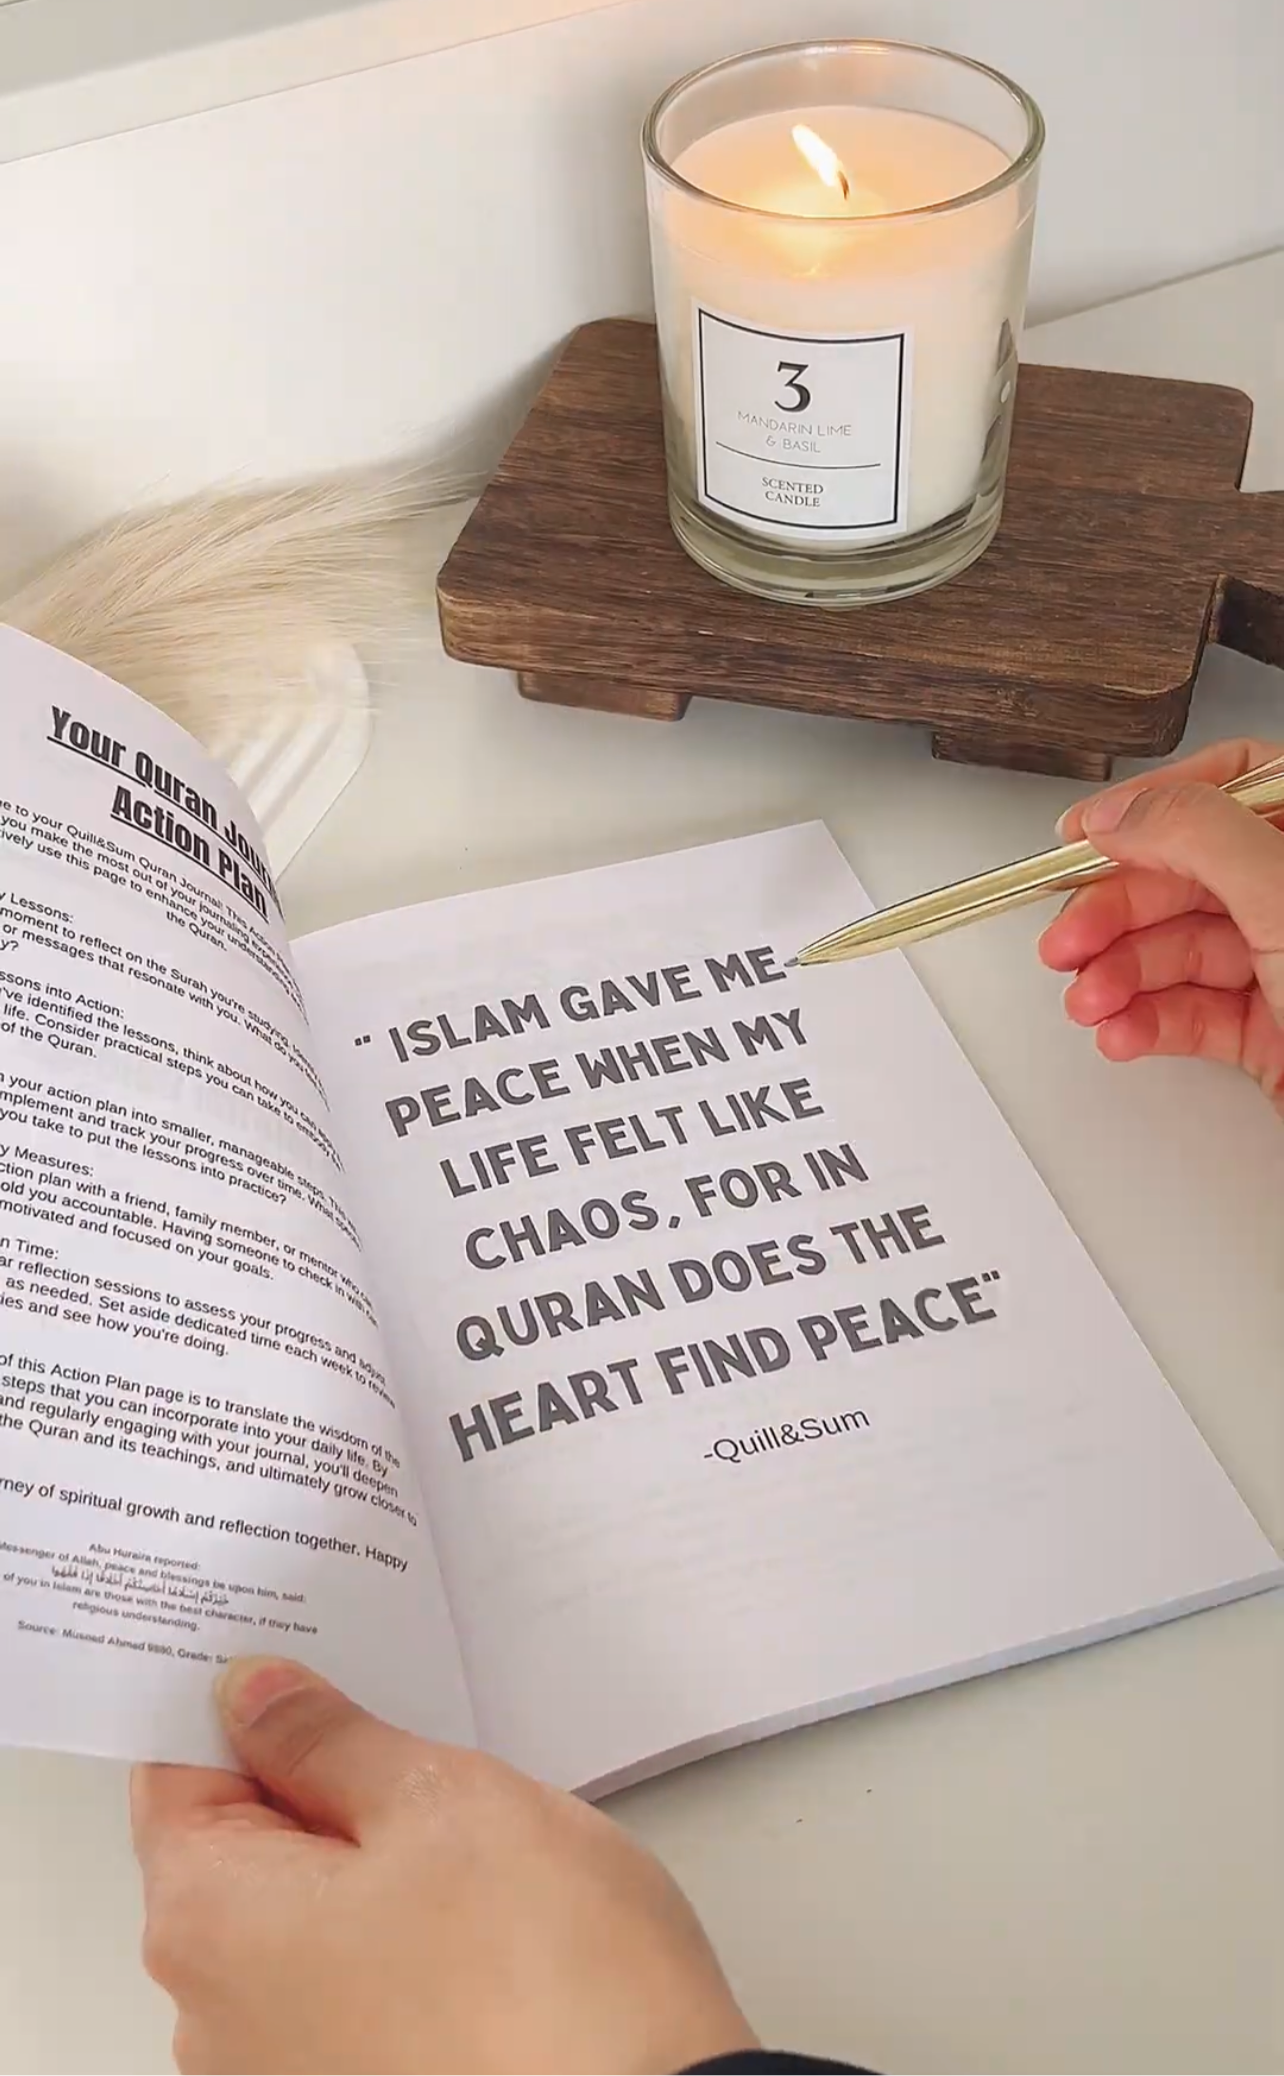 3
MANDARIN LIME
& BASIL
SCENTED
CANDLE
Your Quran
Action Plan
e to your Quill&Sum Quran Journal! This Action
you make the most out of your journaling
ively use this page to enhance your understanding
the Quran.
y Lessons:
moment to reflect on the Surah you're studying.
or messages that resonate with you. What do you
y?
ssons into Action:
've identified the lessons, think about how you can
life. Consider practical steps you can take to embody
of the Quran.
n your action plan into smaller, manageable steps. This
mplement and track your progress over time. What
you take to put the lessons into practice?
y Measures:
ction plan with a friend, family member, or mentor who
old you accountable. Having someone to check in with
motivated and focused on your goals.
n Time:
ar reflection sessions to assess your progress and adjust
as needed. Set aside dedicated time each week to review
ies and see how you're doing.
of this Action Plan page is to translate the wisdom of the
steps that you can incorporate into your daily life. By
and regularly engaging with your journal, you'll deepen
the Quran and its teachings, and ultimately grow closer to
rney of spiritual growth and reflection together. Happy
Abu Huraira reported:
Messenger of Allah, peace and blessings be upon him, said:
of you in Islam are those with the best character, if they have
religious understanding.
Source: Musnad Ahmad Grade:
" ISLAM GAVE ME
PEACE WHEN MY
LIFE FELT LIKE
CHAOS, FOR IN
QURAN DOES THE
HEART FIND PEACE"
-Quill&Sum